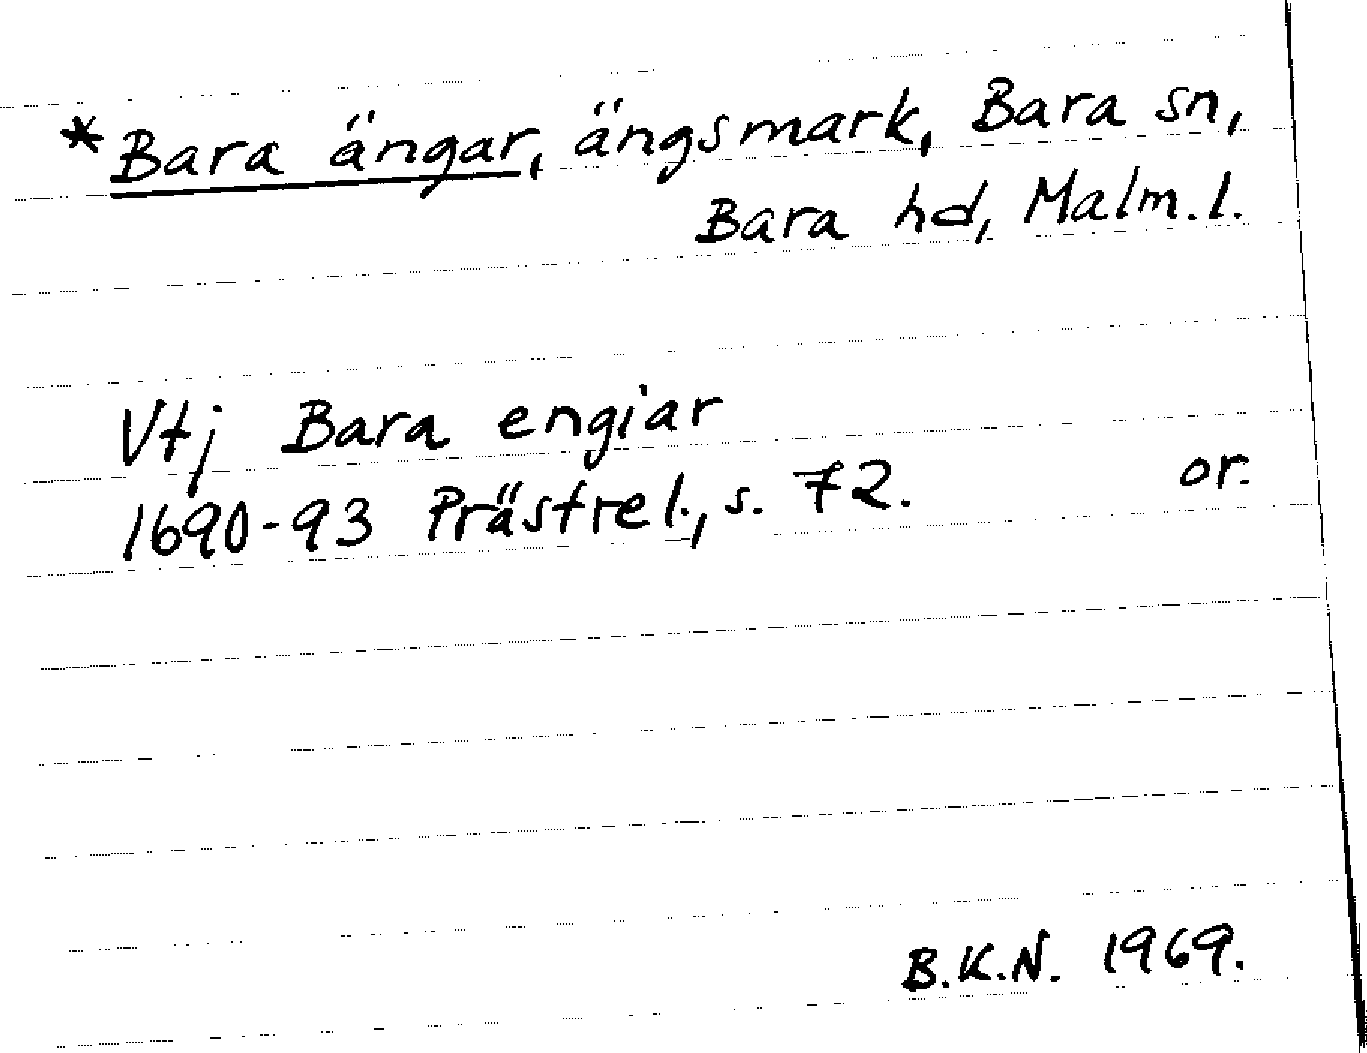 *Bara ängar, ängsmark, Bara sn,
Bara hd, Malm.l.
Vtj Bara engiar
1690-93 Prästrel., s. 72. or.
B.K.N. 1969.